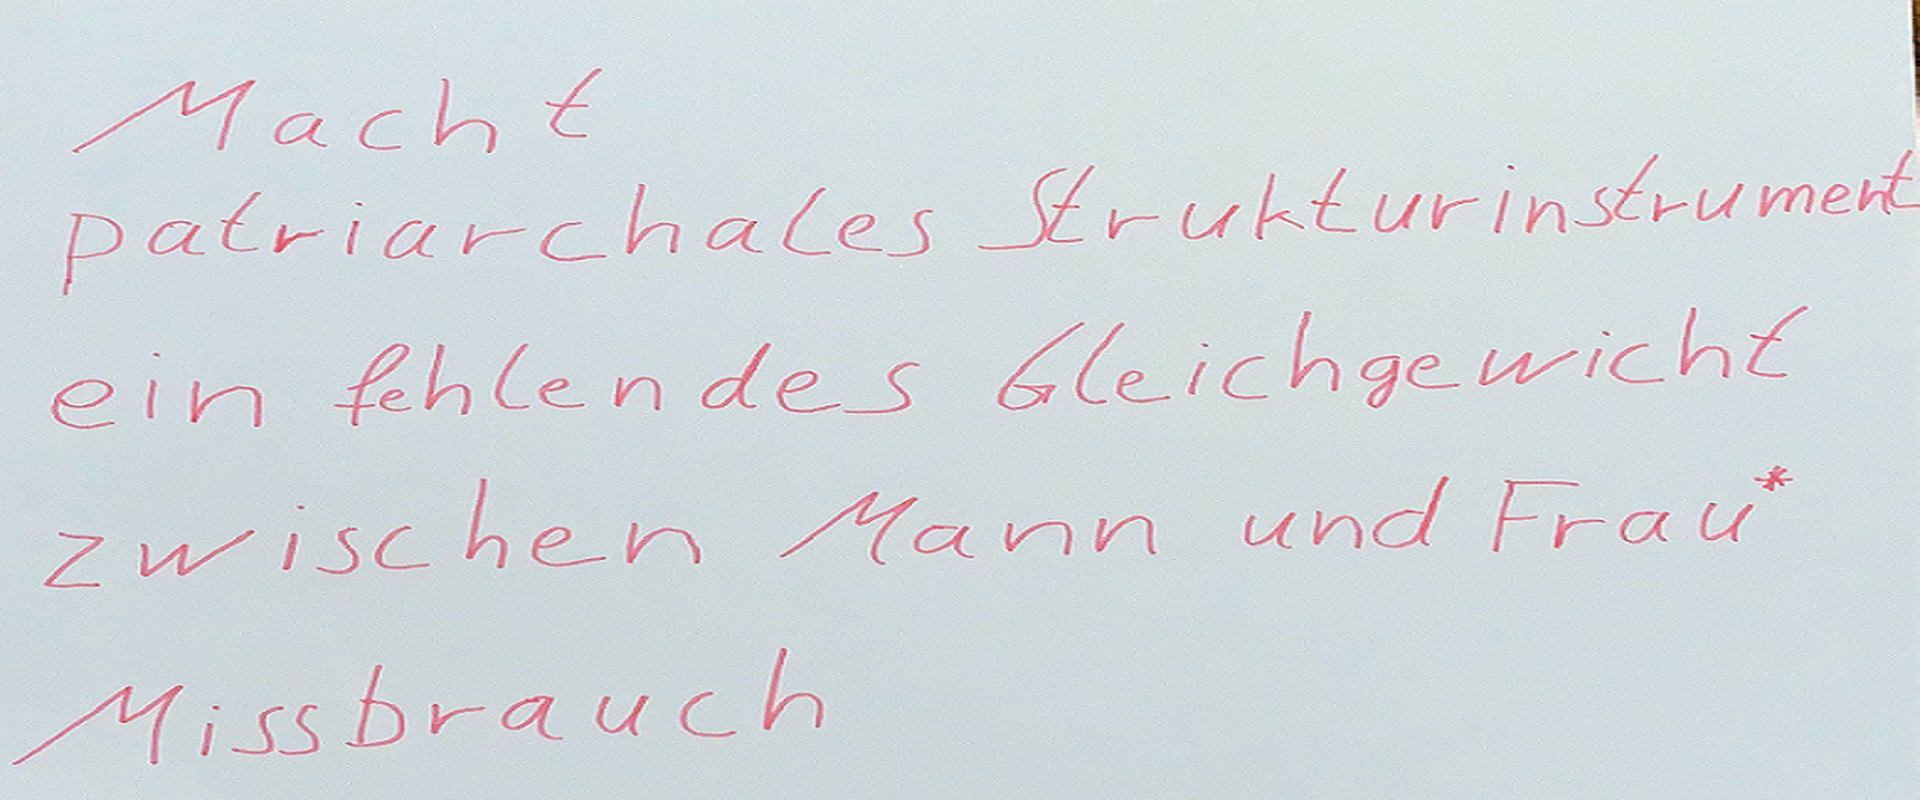 Macht
patriarchales Strukturinstrument
ein fehlendes Gleichgewicht
zwischen Mann und Frau*
Missbrauch